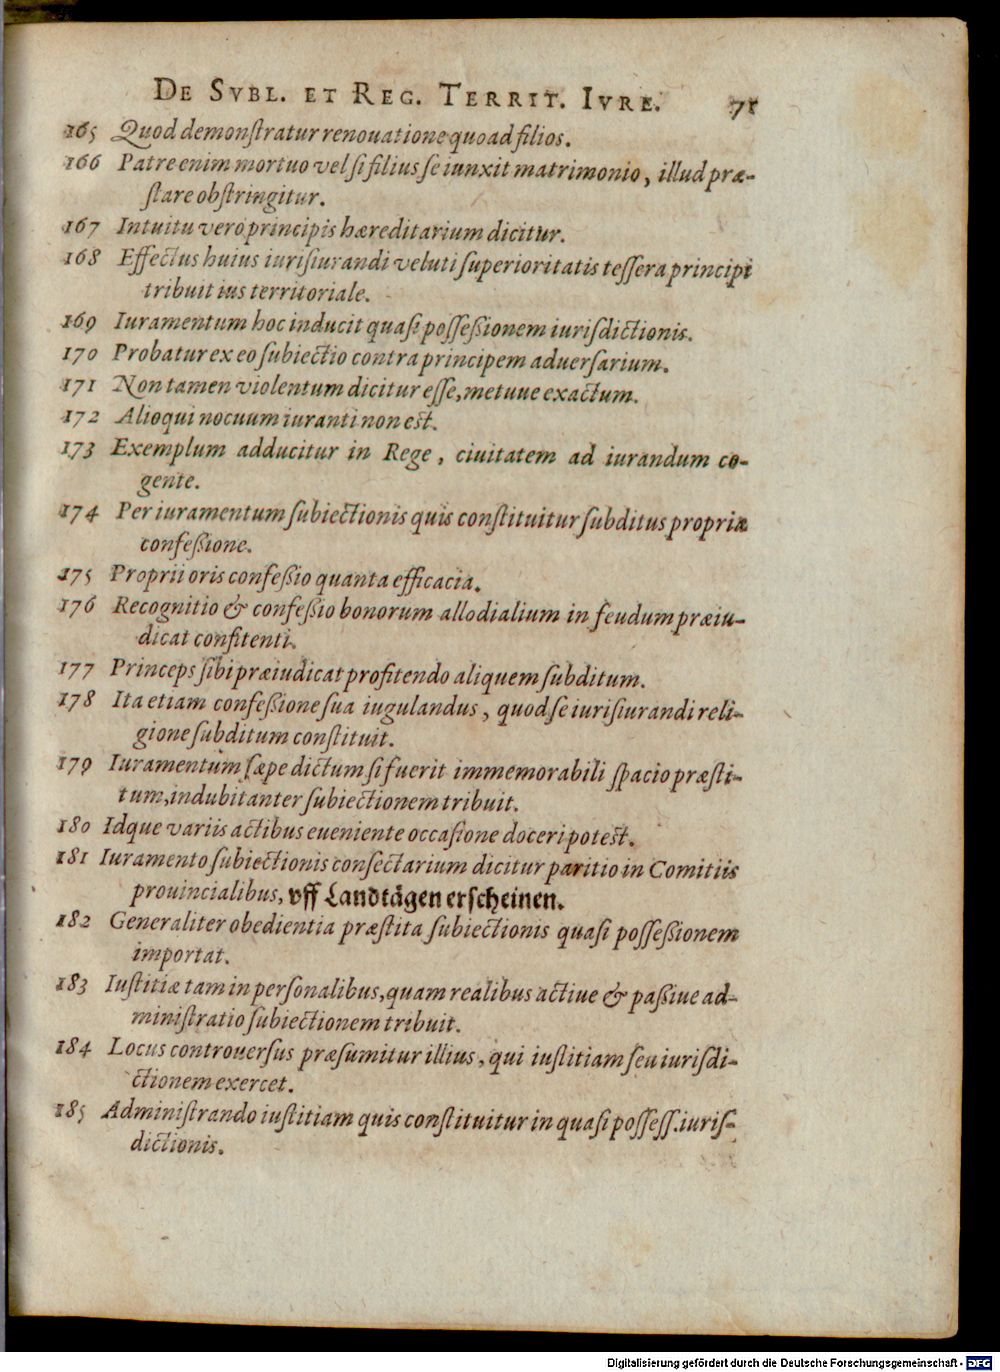 De Svbl. et Reg. Territ. Ivre. 71
165 Quod demonſtratur renouatione quoad filios.
166 Patre enim mortuo vel ſi filius ſe iunxit matrimonio, illud præ-
ſtare obſtringitur.
167 Intuitu vero principis hæreditarium dicitur.
168 Effectus huius iuriſiurandi veluti ſuperioritatis teſſera principi
tribuit ius territoriale.
169 Iuramentum hoc inducit quaſi poſſeßionem iurisdictionis.
170 Probatur ex eo ſubiectio contra principem aduerſarium.
171 Non tamen violentum dicitur eſſe, metuue exactum.
172 Alioqui nocuum iuranti non est.
173 Exemplum adducitur in Rege, ciuitatem ad iurandum co-
gente.
174 Per iuramentum ſubiectionis quis conſtituitur ſubditus propria
confeßione.
175 Proprii oris confeßio quanta efficacia.
176 Recognitio & confeßio bonorum allodialium in feudum præiu-
dicat confitenti.
177 Princeps ſibi præiudicat profitendo aliquem ſubditum.
178 Ita etiam confeßione ſua iugulandus, quod ſe iuriſiurandi reli-
gione ſubditum conſtituit.
179 Iuramentum ſæpe dictum ſi fuerit immemorabili ſpacio præſti-
tum, indubitanter ſubiectionem tribuit.
180 Idque variis actibus eueniente occaſione doceri potest.
181 Iuramento ſubiectionis conſectarium dicitur paritio in Comitiis
prouincialibus, vff Landtägen erſcheinen.
182 Generaliter obedientia præſtita ſubiectionis quaſi poſſeßionem
importat.
183 Iuſtitiæ tam in perſonalibus, quam realibus actiue & paßiue ad-
miniſtratio ſubiectionem tribuit.
184 Locus controuerſus præſumitur illius, qui iuſtitiam ſeu iurisdi-
ctionem exercet.
185 Adminiſtrando iuſtitiam quis conſtituitur in quaſi poſſeſſ. iuriſ-
dictionis.
Digitalisierung gefördert durch die Deutsche Forschungsgemeinschaft - DFG